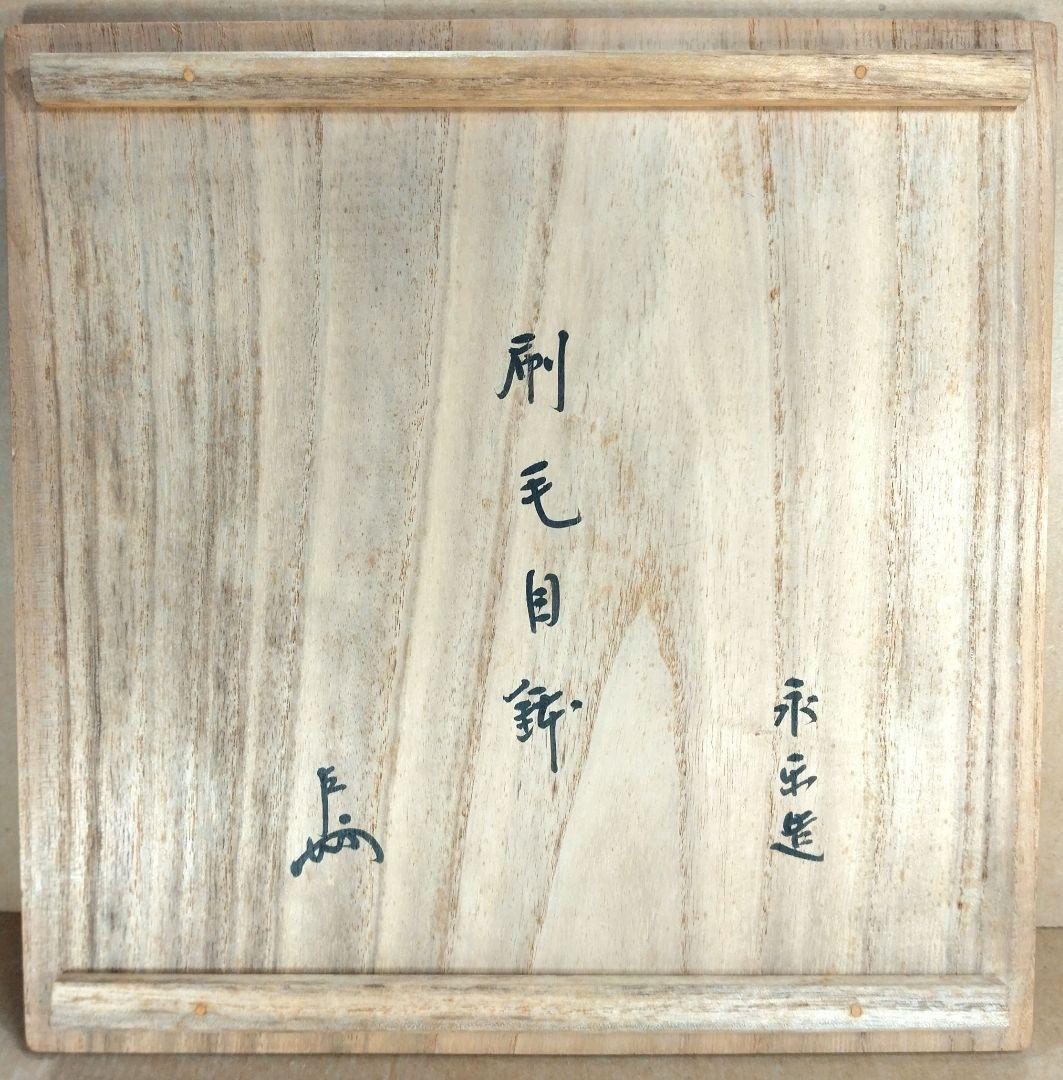 永楽造
刷毛目鉢